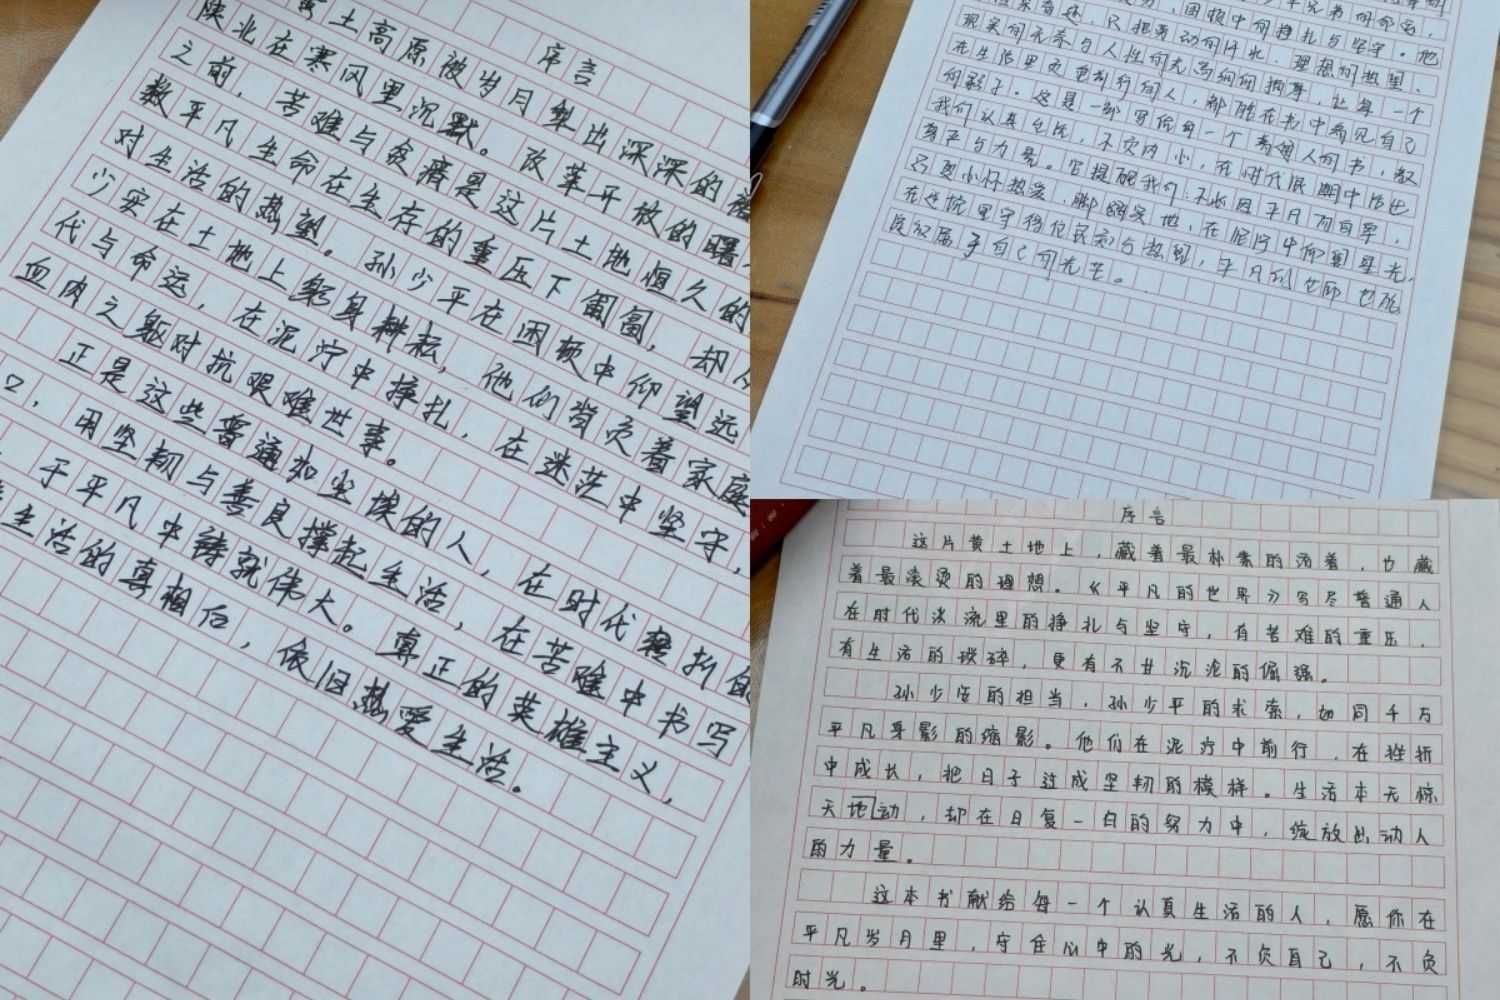 序言
黄土高原被岁月犁出深深的
陕北在寒风里沉默。改革开放的曙
之前，苦难与贫瘠是这片土地恒久的
数平凡生命在生存的重压下匍匐，却
对生活的热望。孙少平在困顿中仰望远
少安在土地上躬身耕耘，他们背负着家庭
代与命运，在泥泞中挣扎，在迷茫中坚守，
血肉之躯对抗艰难世事。
正是这些普通如尘埃的人，在时代转折的
口，用坚韧与善良撑起生活，在苦难中书写
于平凡中铸就伟大。真正的英雄主义，
生活的真相后，依旧热爱生活。
困顿中的挣扎与坚守。他
现实的无奈与人性的光
在生活里艰难前行的人，都能在书中看见自己
的影子。这是一部写给每一个普通人的书，教
我们认真生活，不负内心，在时代浪潮中活出
尊严与力量。它提醒我们：不必因平凡而自卑，
只要心怀热爱、脚踏实地，在泥泞中仰望星光，
在迷茫里守得住良知与热望，平凡的世界也能
绽放属于自己的光芒。
序言
这片黄土地上，藏着最朴素的活着，也藏
着最滚烫的理想。《平凡的世界》写尽普通人
在时代洪流里的挣扎与坚守，有苦难的重压，
有生活的琐碎，更有不甘沉沦的倔强。
孙少安的担当，孙少平的求索，如同千万
平凡身影的缩影。他们在泥泞中前行，在挫折
中成长，把日子过成坚韧的模样。生活本无惊
天地动，却在日复一日的努力中，绽放出动人
的力量。
这本书献给每一个认真生活的人，愿你在
平凡岁月里，守住心中的光，不负自己，不负
时光。